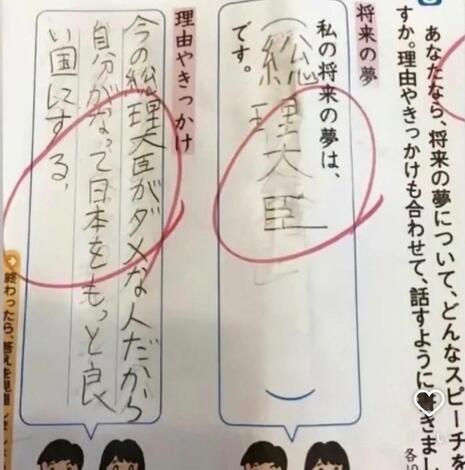 あなたなら、将来の夢について、どんなスピーチを
すか。理由やきっかけも合わせて、話すように書きまし
各10
将来の夢
私の将来の夢は、
(総理大臣)
です。
理由やきっかけ
今の総理大臣がダメな人だから
自分がなって日本をもっと良
い国にする、
終わったら、答えを見直しましょ